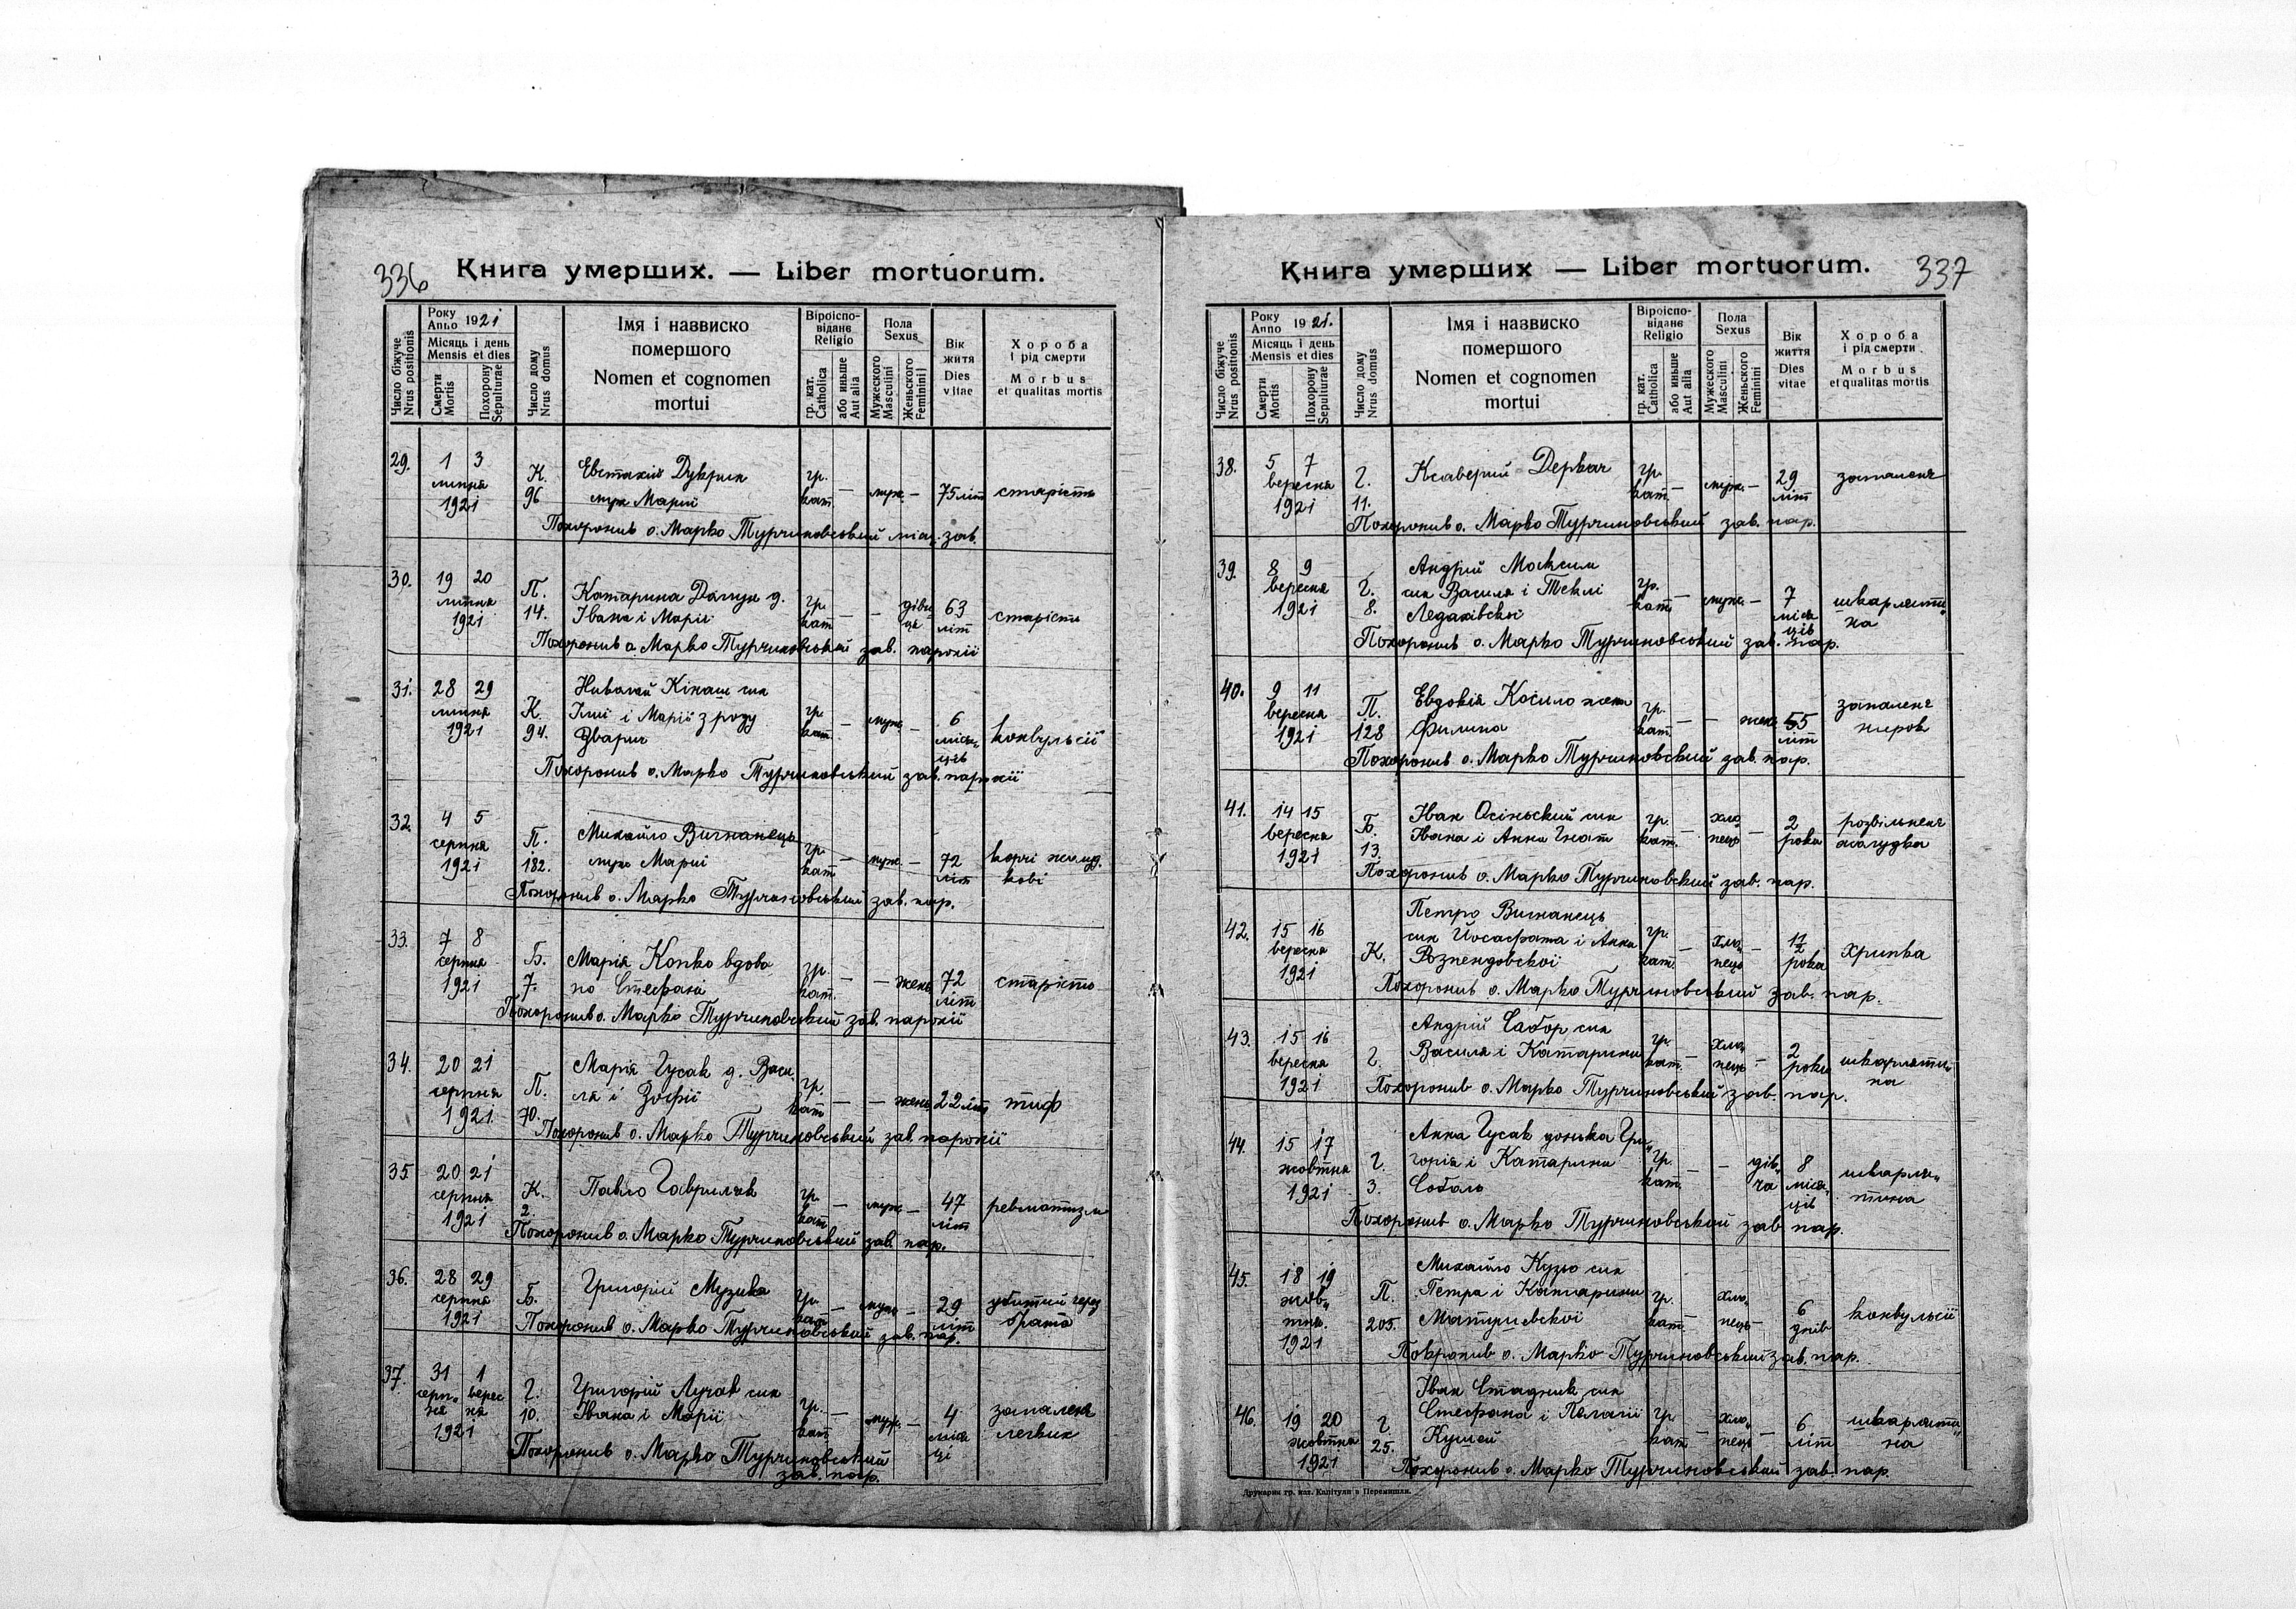 336 Книга умерших. — Liber mortuorum.
Число біжуче Nrus positionis
Року Anno 1921
Місяць і день Mensis et dies
Смерти Mortis
Похорону Sepulturae
Число дому Nrus domus
Імя і назвиско помершого
Nomen et cognomen mortui
Віроіспо-відане Religio
гр. кат. Catholica
або иньше Aut alia
Пола Sexus
Мужеского Masculini
Женьского Feminini
Вік житя Dies vitae
Хороба і рід смерти
Morbus et qualitas mortis
29. 1 3 липня 1921 К. 96
Евстахій Дукрик
муж Марії
гр. кат. — муж. — 75 літ старість
Похоронив о. Марко Турчиновський зав.
30. 19 20 липня 1921 П. 14.
Катарина Данчук д.
Івана і Марії
гр. кат. — — 63 літ старість
Похоронив о. Марко Турчиновський зав. парохії
31. 28 29 липня 1921 К. 94.
Николай Кінаш син
Ілії і Марії з роду
Зварич
гр. кат. — муж. — 6 місяців конвульсії
Похоронив о. Марко Турчиновський зав. парохії
32. 4 5 серпня 1921 П. 182.
Михайло Вигнанець
муж Марії
гр. кат. — муж. — 72 літ корчі жолуд.
кові
Похоронив о. Марко Турчиновський зав. пар.
33. 7 8 серпня 1921 Б. 7.
Марія Копко вдова
по Стефані
гр. кат. — — жень 72 літ старість
Похоронив о. Марко Турчиновський зав. парохії
34. 20 21 серпня 1921. П. 70.
Марія Гусак д. Васи
ля і Зофії
гр. кат — — жень 22 літ тиф
Похоронив о. Марко Турчиновський зав. парохії
35. 20 21 серпня 1921 К. 2.
Павло Гавриляк
гр. кат — муж — 47 літ ревматизм
Похоронив о. Марко Турчиновський зав. пар.
36. 28 29 серпня 1921 Б.
Григорій Музика
гр. кат — муж — 29 літ убитий через
брата
Похоронив о. Марко Турчиновський зав. пар.
37. 31 1 серпня вересня 1921 Г. 10.
Григорій Лучак син
Івана і Марії
гр. кат — муж. — 4 місяці запалене
легких
Похоронив о. Марко Турчиновський
зав. пар.
Книга умерших — Liber mortuorum. 337
Число біжуче Nrus positionis
Року Anno 1921.
Місяць і день Mensis et dies
Смерти Mortis
Похорону Sepulturae
Число дому Nrus domus
Імя і назвиско помершого
Nomen et cognomen mortui
Віроіспо-відане Religio
гр. кат. Catholica
або иньше Aut alia
Пола Sexus
Мужеского Masculini
Женьского Feminini
Вік життя Dies vitae
Хороба і рід смерти
Morbus et qualitas mortis
38. 5 7 вересня 1921 Г. 11.
Ксаверий Деркач
гр. кат. — муж. — 29 літ запалене
Похоронив о. Марко Турчиновський зав. пар.
39. 8 9 вересня 1921 Г. 8.
Андрій Максим
син Василя і Теклі
Ледахівскої
гр. кат. муж. — 7 місяців шкарляти
на
Похоронив о. Марко Турчиновський зав. пар.
40. 9 11 вересня 1921 П. 128
Евдокія Косило жена
Филипа
гр. кат. — — жень 55 літ запалене
нирок
Похоронив о. Марко Турчиновский зав. пар.
41. 14 15 вересня 1921 Б. 13.
Іван Осіньский син
Івана і Анни Гнат
гр. кат. — хлопець — 2 роки розвільнене
жолудка
Похоронив о. Марко Турчиновский зав. пар.
42. 15 16 вересня 1921 К.
Петро Вигнанець
син Йосафата і Анни
гр. кат. — хлопець — 1½ рока Хрипка
Похоронив о. Марко Турчиновський зав. пар.
43. 15 16 вересня 1921 Г.
Андрій Сабор син
Василя і Катарини
гр. кат. — хлопець — 2 роки шкарляти
на
Похоронив о. Марко Турчиновський зав. пар.
44. 15 17 жовтня 1921 Г. 3.
Анна Гусак донька Гри„
горія і Катарини
Соболь
гр. кат. — — дівча 8 місяців шкарля„
тина
Похоронив о. Марко Турчиновський зав. пар.
45. 18 19 жовтня. 1921 П. 205.
Михайло Кузьо син
Петра і Катарини
Матушевскої
гр. кат. хлопець 6 днів конвульсії
Похоронив о. Марко Турчиновський зав. пар.
46. 19 20 жовтня 1921 Г. 25.
Іван Стадник син
Стефана і Пелагії
Кушей
гр. кат — хлопець — 6 літ шкарляти„
на
Похоронив о. Марко Турчиновський зав. пар.
Друкарня гр. кат. Капітули в Перемишли.